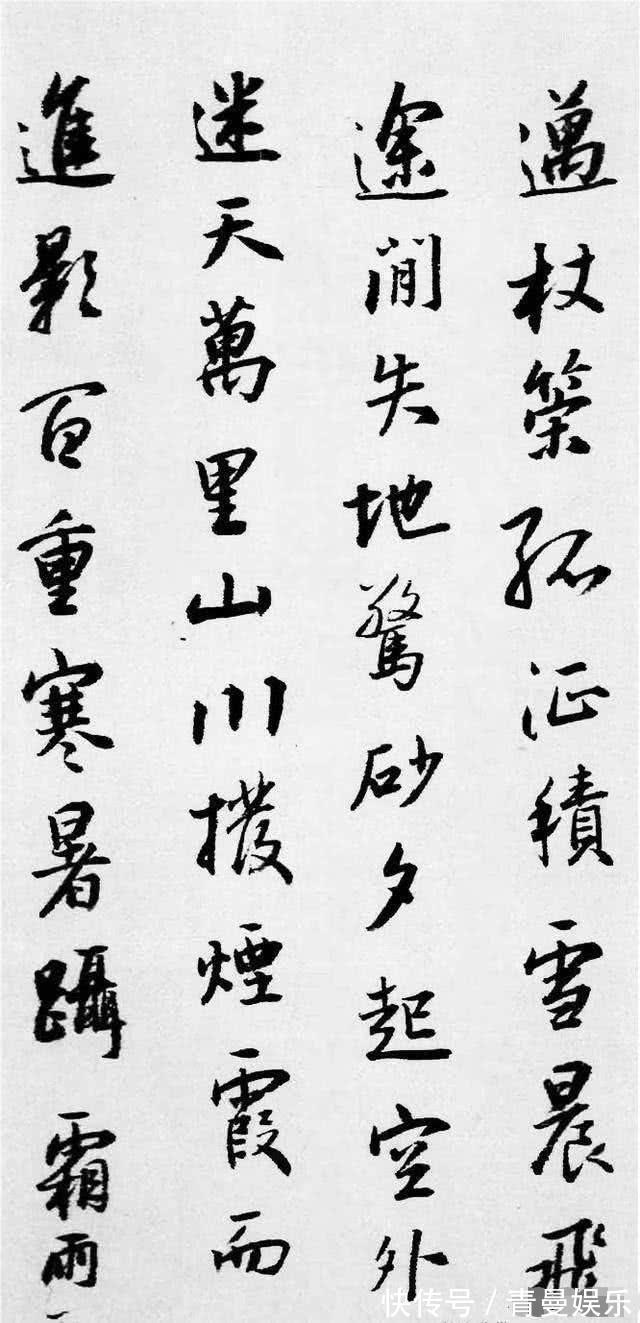 邁杖策孤征積雪晨飛
途間失地驚砂夕起空外
迷天萬里山川撥煙霞而
進影百重寒暑躡霜雨
快传号/青曼娱乐